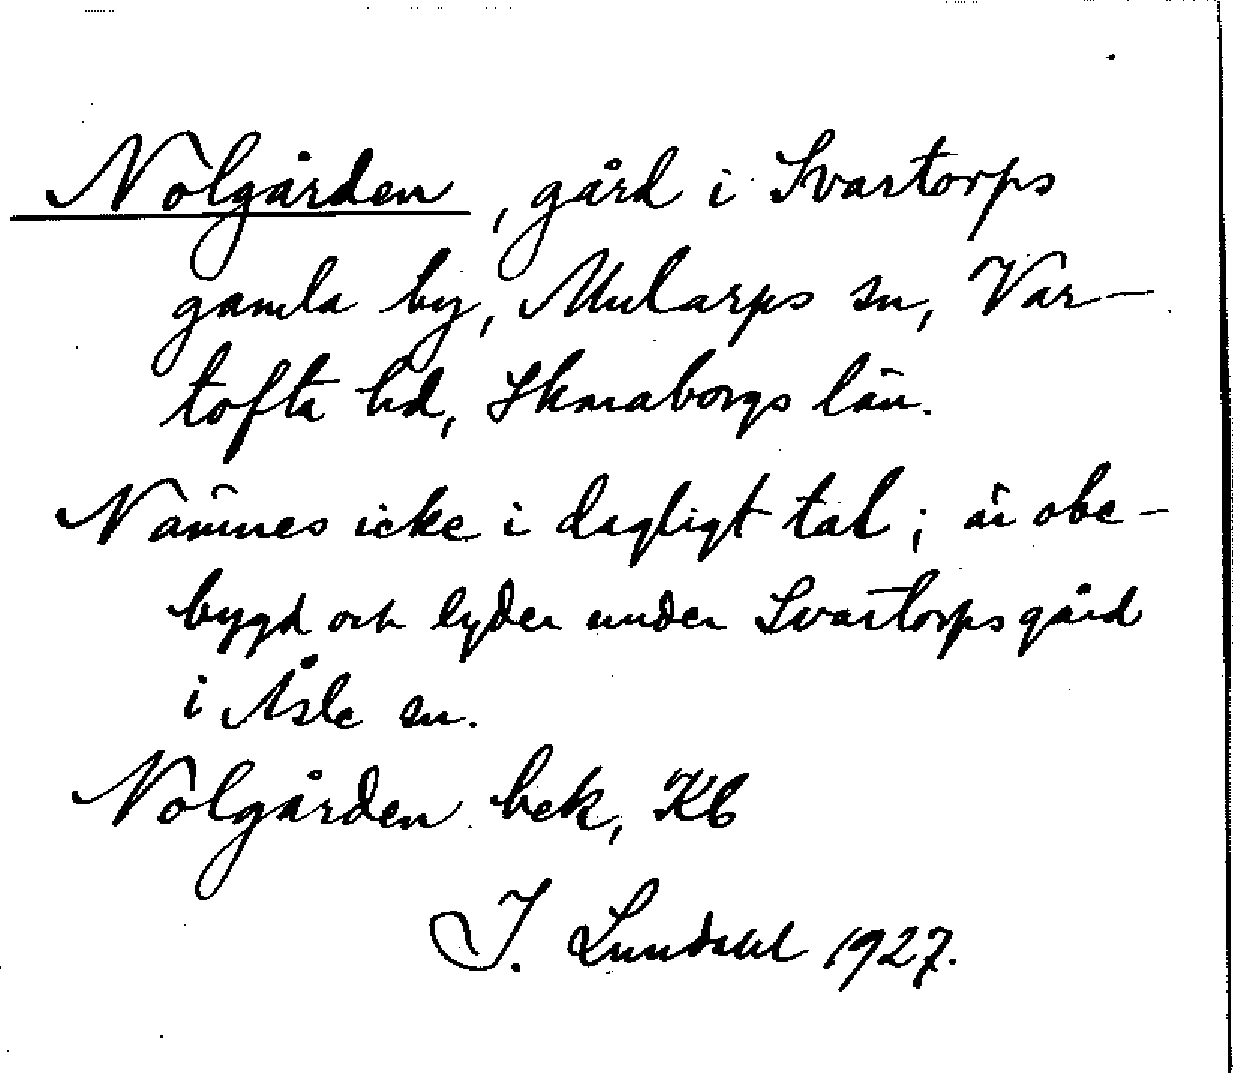 Nolgården, gård i Svartorps
gamla by, Mularps sn, Var-
tofta hd, Skaraborgs län.
Nämnes icke i dagligt tal; är obe-
bygd och lyder under Svartorpsgård
i Åsle sn.
Nolgården bek, Kb
I. Lundahl 1927.